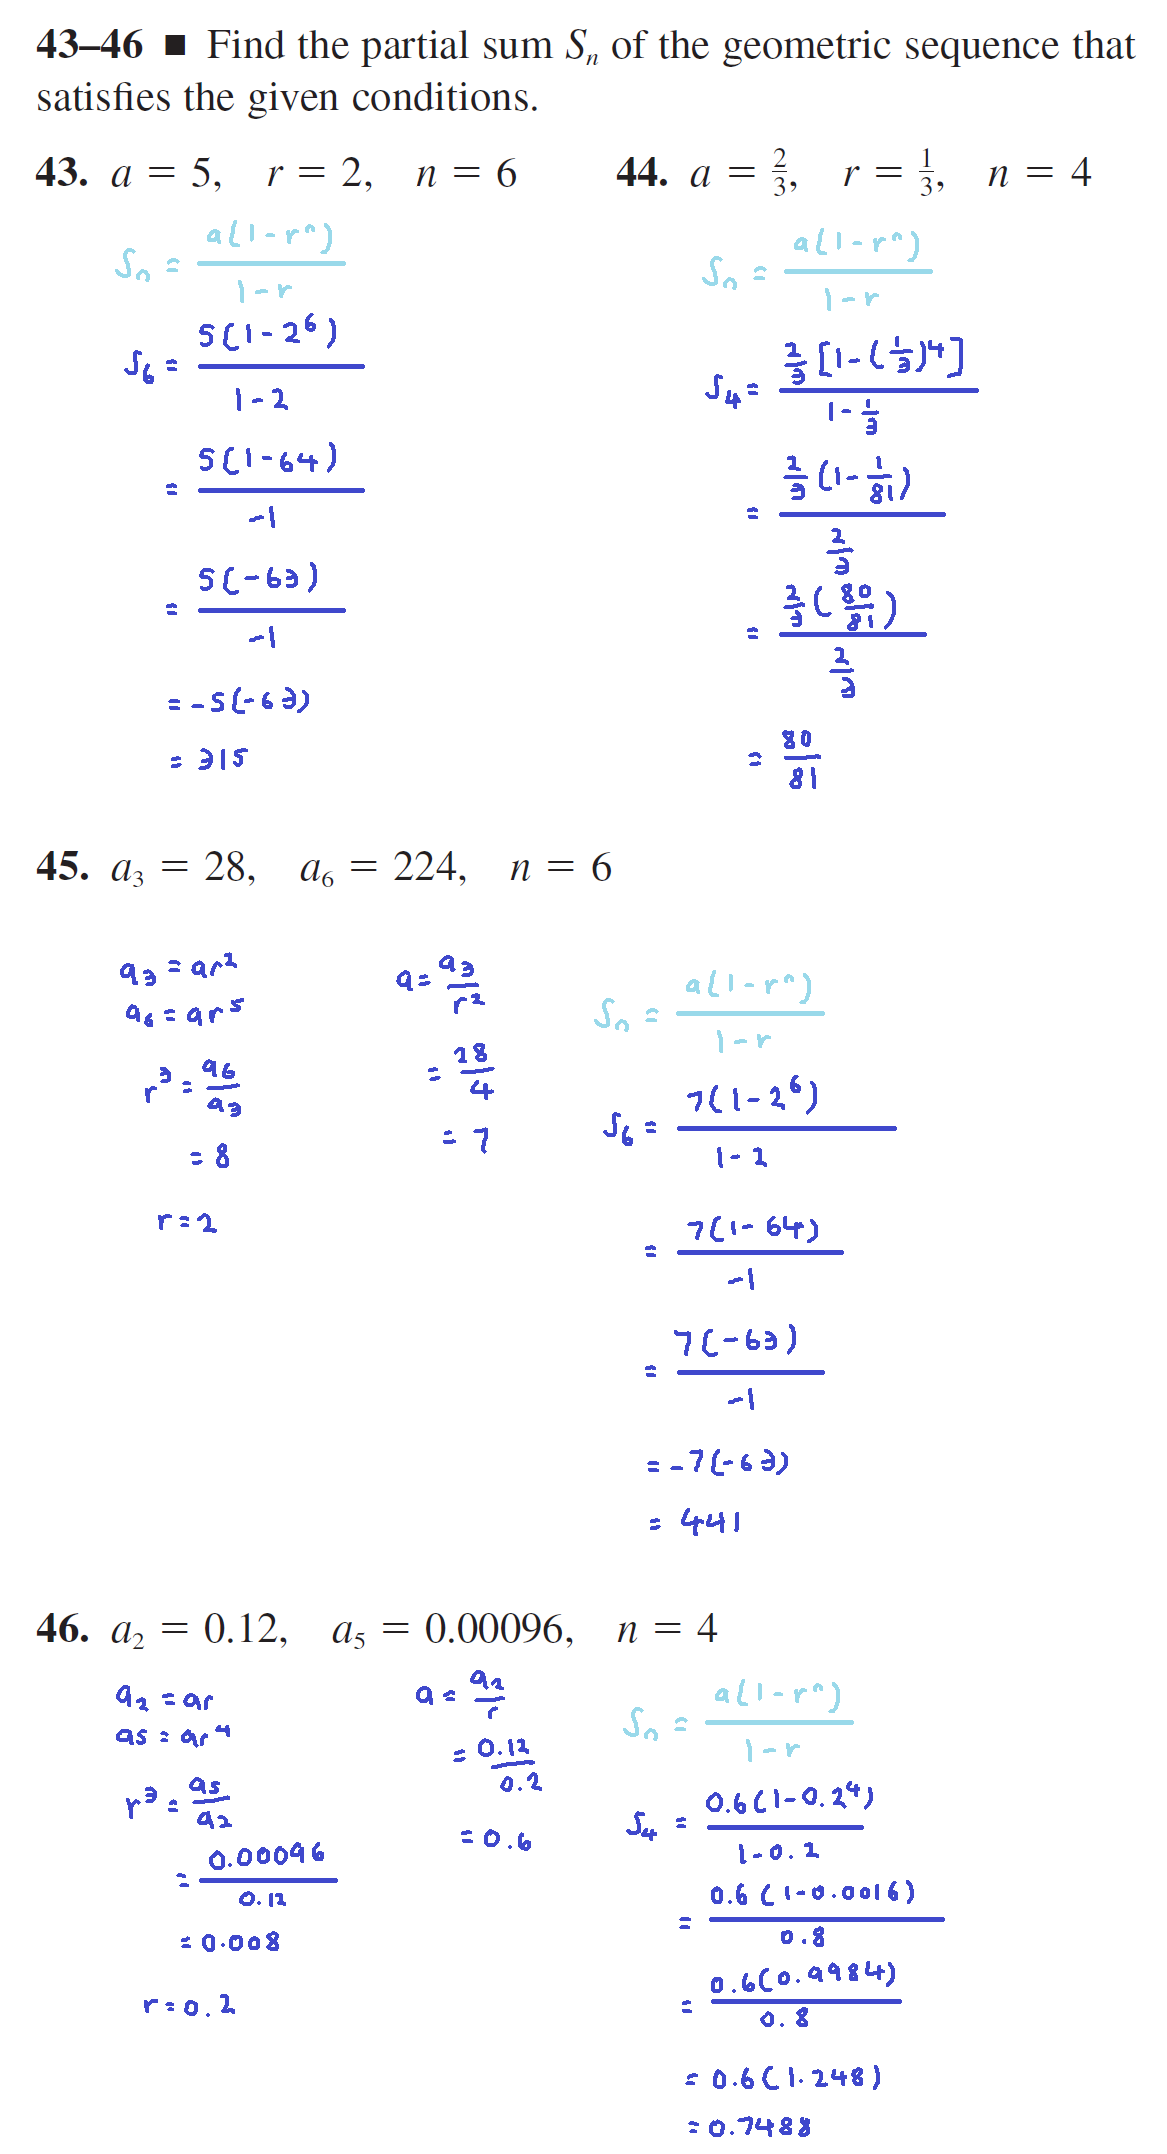 43–46 ■ Find the partial sum Sₙ of the geometric sequence that
satisfies the given conditions.
43. a = 5, r = 2, n = 6
Sₙ = a(1-rⁿ) / 1-r
S₆ = 5(1-2⁶) / 1-2
= 5(1-64) / -1
= 5(-63) / -1
= -5(-63)
= 315
44. a = 2/3, r = 1/3, n = 4
Sₙ = a(1-rⁿ) / 1-r
S₄ = 2/3 [1-(1/3)⁴] / 1-1/3
= 2/3 (1-1/81) / 2/3
= 2/3 (80/81) / 2/3
= 80/81
45. a₃ = 28, a₆ = 224, n = 6
a₃ = ar²
a₆ = ar⁵
r³ = a₆/a₃
= 8
r = 2
a = a₃/r²
= 28/4
= 7
Sₙ = a(1-rⁿ) / 1-r
S₆ = 7(1-2⁶) / 1-2
= 7(1-64) / -1
= 7(-63) / -1
= -7(-63)
= 441
46. a₂ = 0.12, a₅ = 0.00096, n = 4
a₂ = ar
a₅ = ar⁴
r³ = a₅/a₂
= 0.00096 / 0.12
= 0.008
r = 0.2
a = a₂/r
= 0.12/0.2
= 0.6
Sₙ = a(1-rⁿ) / 1-r
S₄ = 0.6(1-0.2⁴) / 1-0.2
= 0.6(1-0.0016) / 0.8
= 0.6(0.9984) / 0.8
= 0.6(1.248)
= 0.7488